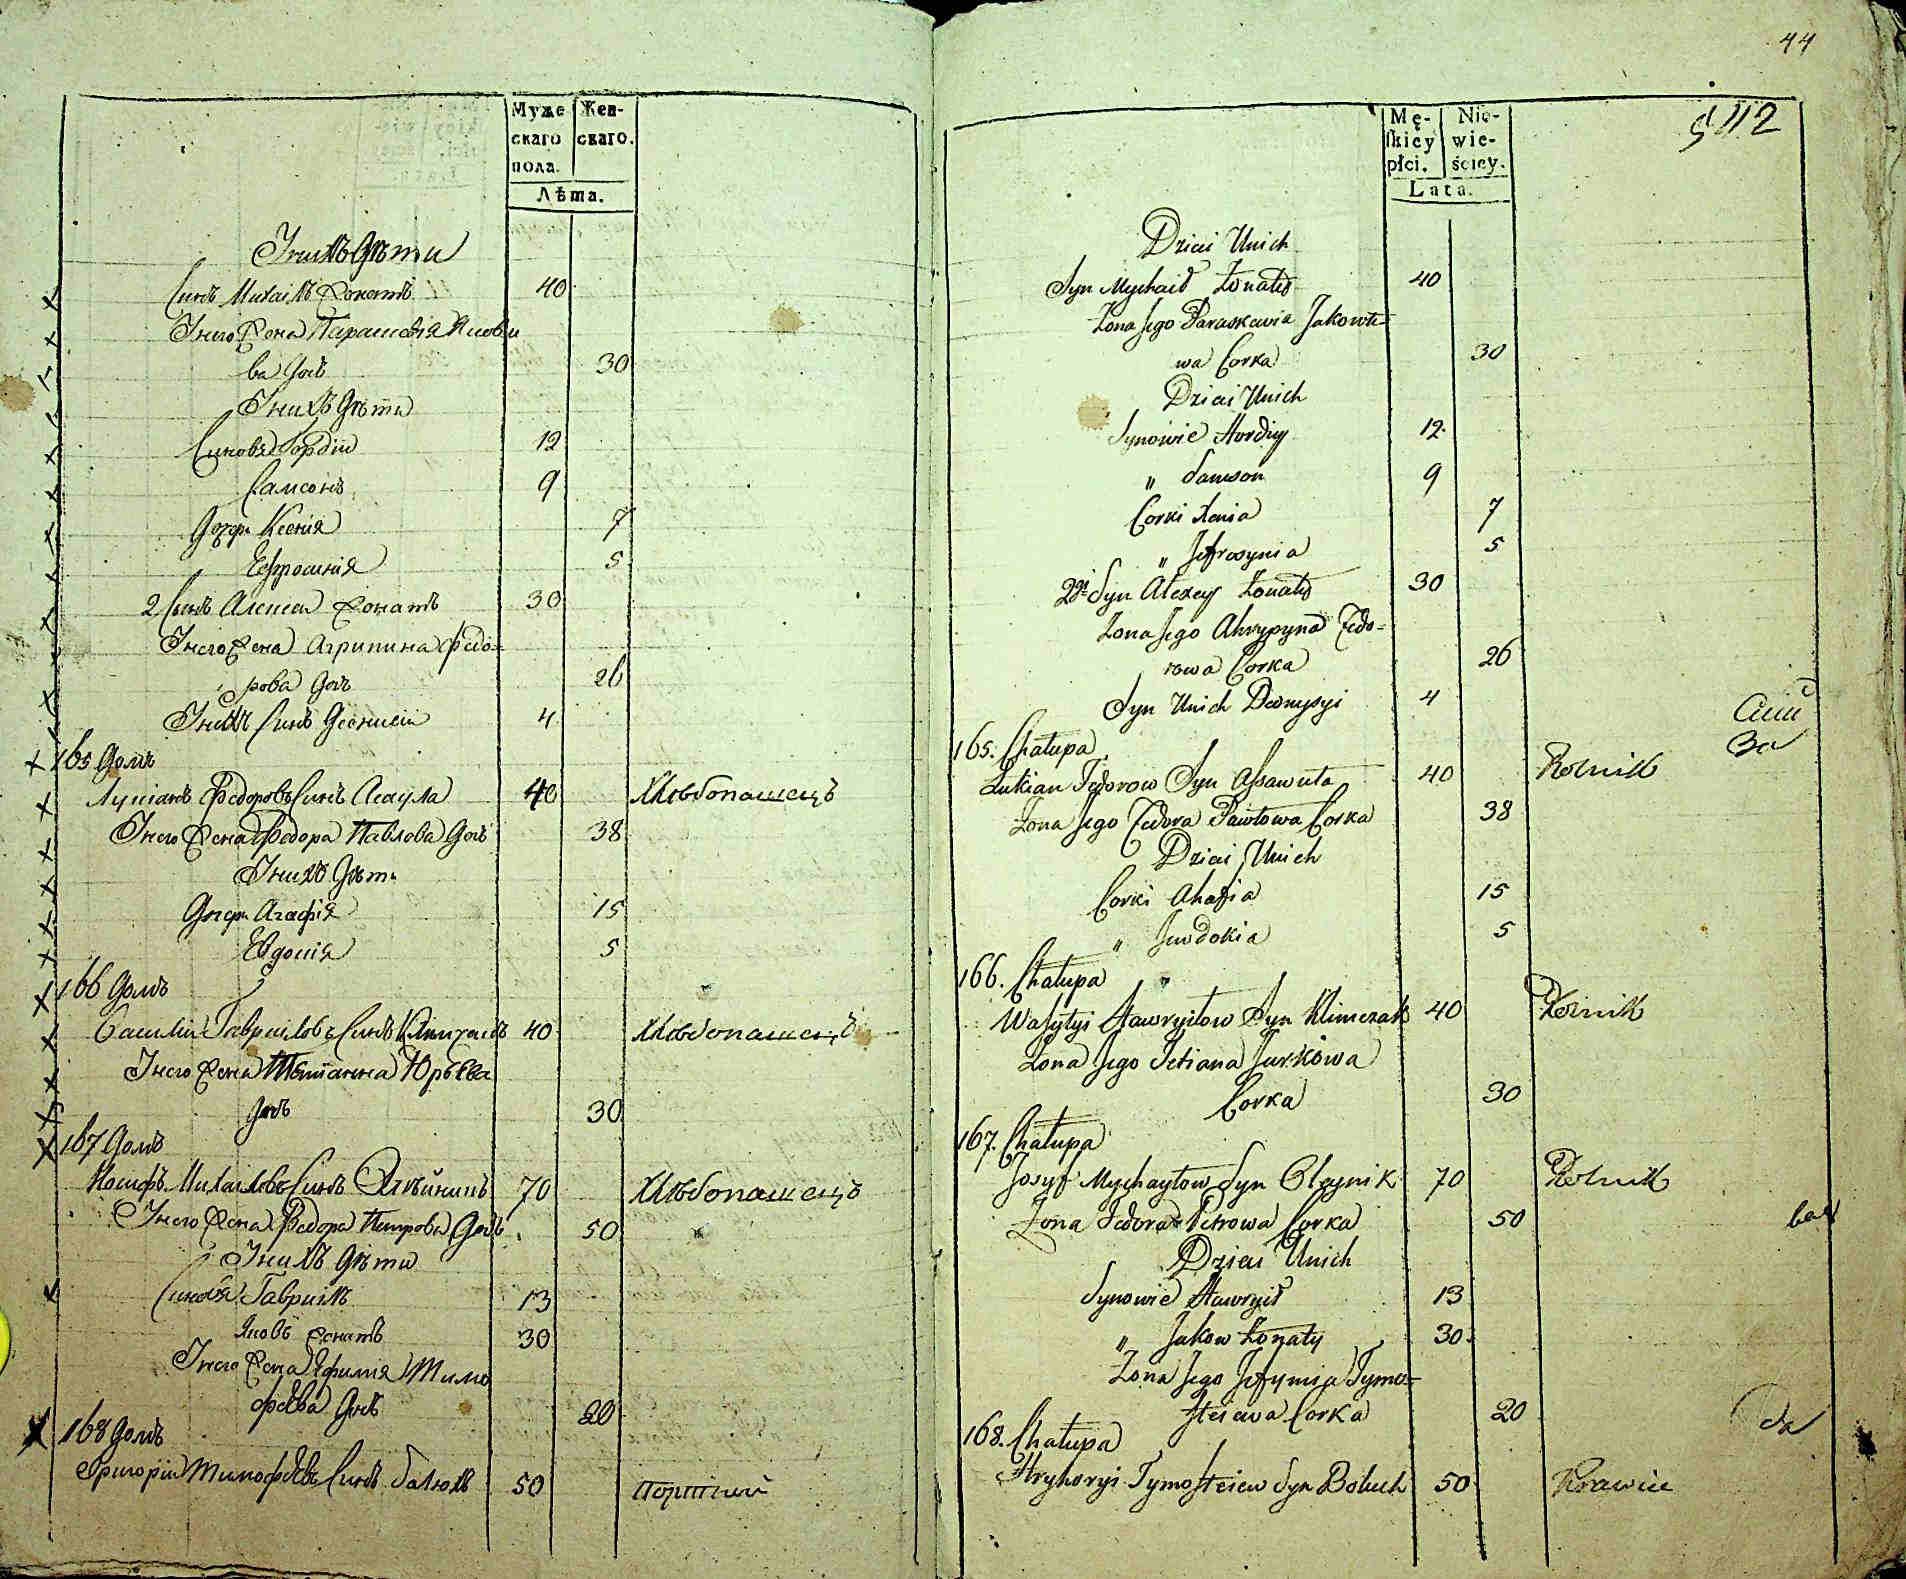 Муже
скаго
пола.
Жен-
скаго.
Лѣта.
У нихъ дѣти
Синъ Михаилъ жонатъ 40
У него жена Параскевія Яковле
ва дочь 30
У нихъ дѣти
Синовя Гордій 12
Самсонъ 9
Дочери Ксенія 7
Ефросинія 5
2 Синъ Алексей жонатъ 30
У него жена Агрипина Федо-
рова дочь 26
У нихъ Синъ Деонисій 4
165 домъ
Лукіанъ Федоровъ Синъ Асаула 40 Хлѣбопашецъ
У него жена Федора Павлова дочь 38
У нихъ дѣти
Дочери Агафія 15
Евдокія 5
166 домъ
Василій Гавриловъ Синъ Климчакъ 40 Хлѣбопашецъ
У него жена Тетіанна Юрьева
дочь 30
167 домъ
Иосифъ Михайловъ Синъ Олѣйникъ 70 Хлѣбопашецъ
У него жена Федора Петрова дочь 50
У нихъ дѣти
Синовя Гавриилъ 13
Яковъ жонатъ 30
У него жена Ефимія Тимо
феева дочь 20
168 домъ
Григорій Тимофеевъ Синъ Балюхъ 50 Портний
44
Mę-
skiey
płci.
Nie-
wie-
ściey.
Lata.
Dzieci Unich
Syn Mychaił Żonaty 40
Żona Jego Paraskewia Jakowle-
wa Corka 30
Dzieci Unich
Synowie Hordiy 12
" Samson 9
Corki Xenia 7
" Jefrosynia 5
2gi Syn Alexey Żonaty 30
Żona Jego Ahrypyna Fedo-
rowa Corka 26
Syn Unich Deonysyi 4
165. Chałupa
Łukian Fedorow Syn Assawuła 40 Rolnik
Żona Jego Fedora Pawłowa Corka 38
Dzieci Unich
Corki Ahafia 15
" Jewdokia 5
166. Chałupa
Wasylyi Hawryiłow Syn Klimczak 40 Rolnik
Żona Jego Tetiana Jurkowa
Corka 30
167. Chałupa
Josyf Mychayłow Syn Oleynik 70 Rolnik
Żona Fedora Petrowa Corka 50
Dzieci Unich
Synowie Hawryił 13
" Jakow Żonaty 30
Żona Jego Jefymija Tymo-
fteiewa Corka 20
168. Chałupa
Hryhoryi Tymofteiew Syn Boluch 50 Krawiec